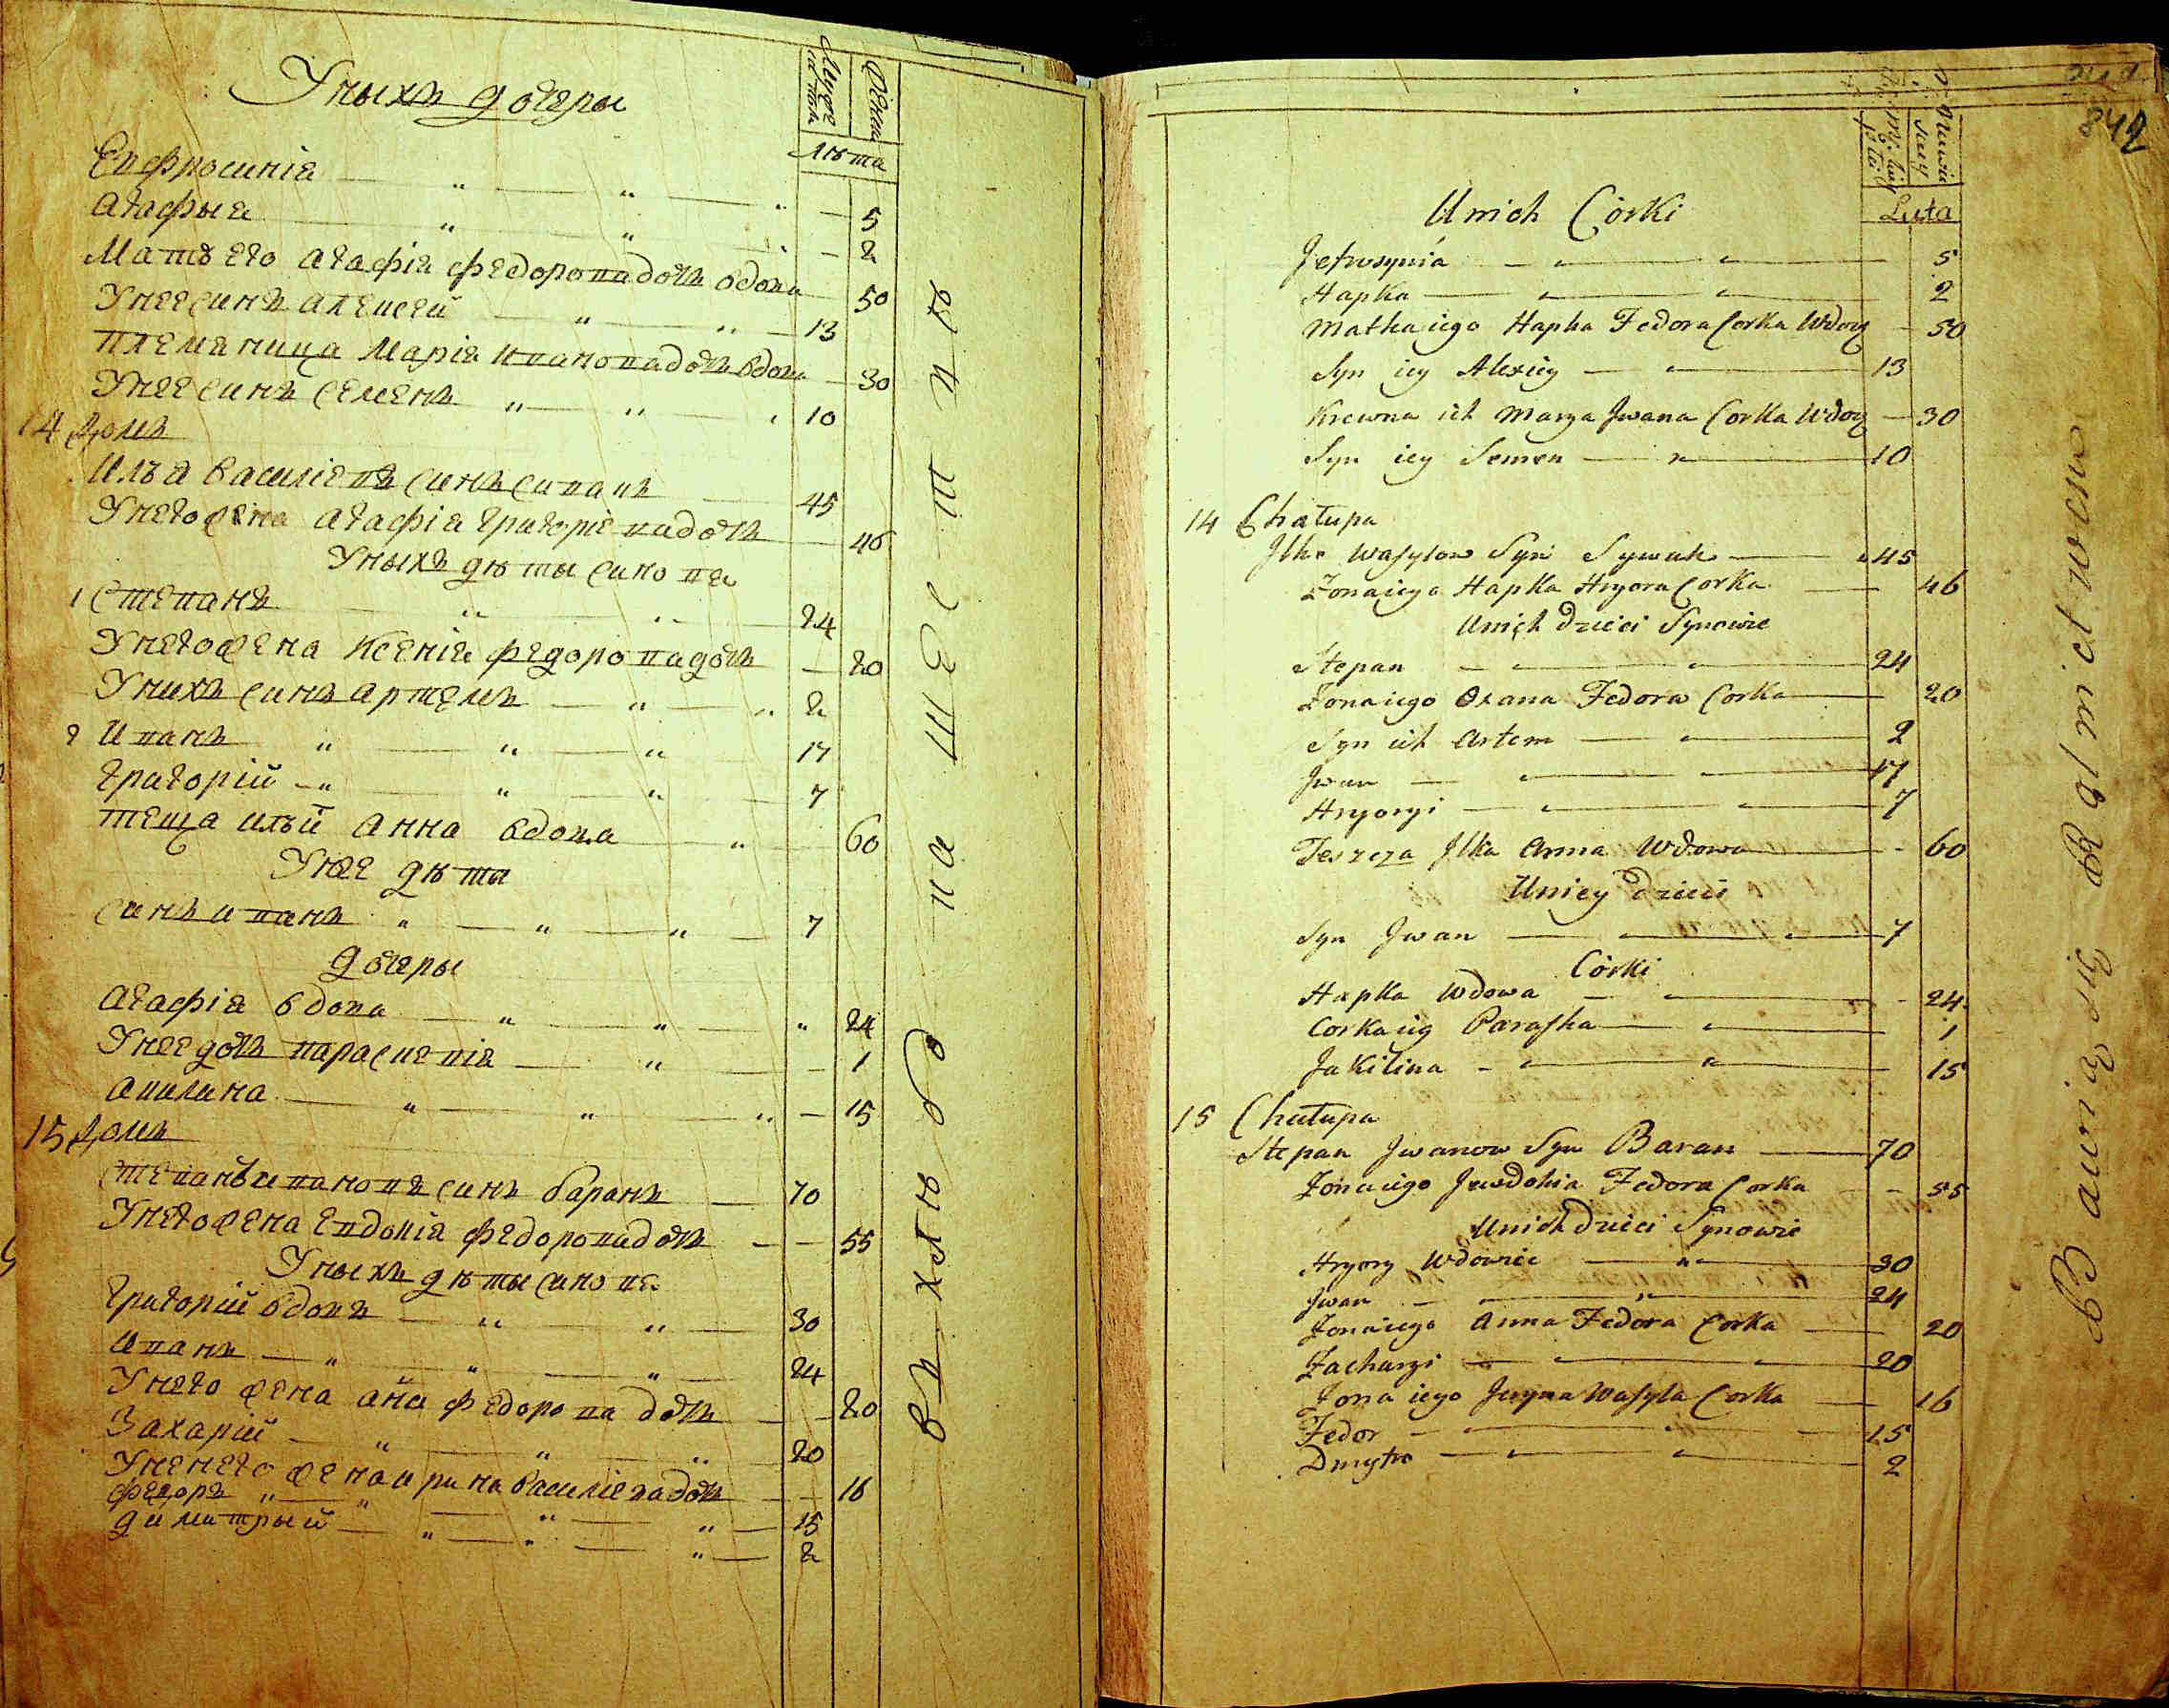 Уныхъ дочеры
Мужеска полъ
Женска
Лѣта
Евфросинія " " " — 5
Агафыя " " " — 2
Матъ его агафія федорова дочъ вдова 50
Унее синъ алексей " " — 13
племаница Марія иванова дочъ вдова — 30
Унее синъ семенъ " " " 10
14 Домъ
Илъа василіевъ синъ сивакъ 45
Унего жена агафіа григоріева дочъ — 46
Уныхъ дѣты синове
1 степанъ " " 24
Унего жена ксеніа федорова дочъ — 20
Унихъ синъ артемъ — " — " 2
2 иванъ " " " 17
григорій — " " " 7
теща илъи анна вдова " 60
Унее дѣти
синъ иванъ " " " 7
дочеры
агафіа вдова " " " 24
Унее дочъ парасневіа " — 1
акилина " " " — 15
15 Домъ
степанъ ивановъ синъ баранъ — 70
Унего жена евдокіа федорова дочъ — — 55
Уныхъ дѣты синове
григорій вдовъ " " — 30
иванъ — " " " 24
Унего жена анна федорова дочъ — — 20
Захарій " " " 20
Унего жена ирина василіева дочъ — — 16
федоръ " " " " — 15
димитрый " " " — 2
въ хлѣбопашествѣ
842
Unich Córki
Lata
Jefrosynia — " " 5
Hapka — " " 2
Matka iego Hapka Fedora Corka Wdowa — 50
Syn iey Alexiey — " 13
Krewna ich Marya Jwana Corka Wdowa — 30
Syn iey Semen — " 10
14 Chałupa
Jlko Wasylow Syn Sywak — 45
Zona iego Hapka Hryora Corka — 46
Unich dzieci Synowie
Stepan — " " 24
Zona iego Oxana Fedora Corka — 20
Syn ich Artem — " 2
Jwan — " 17
Hryoryi — " " 7
Teszcza Jlka Anna Wdowa — 60
Uniey dzieci
Syn Jwan — " " 7
Córki
Hapka Wdowa — " — 24
Corka iey Paraska — " 1
Jakilina — " " 15
15 Chałupa
Stepan Jwanow Syn Baran — 70
Zona iego Jewdokia Fedora Corka — — 55
Unich dzieci Synowie
Hryory Wdowiec — " 30
Jwan — " 24
Zona iego Anna Fedora Corka — 20
Zacharyi — " " 20
Zona iego Jryna Wasyla Corka — 16
Fedor — " — 15
Dmytro — " " 2
Bawią się Rolnictwem